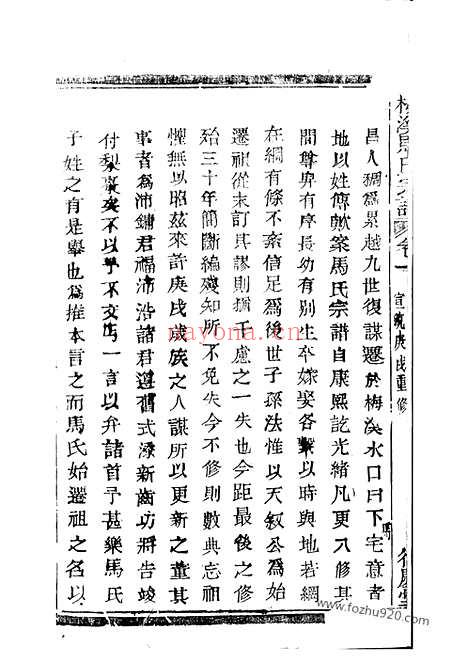 梅溪馬氏宗譜 卷一 宣統庚戌重修
昌人稠為累越九世復謀遷於梅溪水口曰下宅意者
地以姓傳歟案馬氏宗譜自康熙訖光緒凡更八修其
間尊卑有序長幼有別生卒嫁娶各繫以時與地若網
在綱有條不紊信足為後世子孫法惟以天叙公為始
遷祖從未訂其謬則猶千慮之一失也今距最後之修
殆三十年簡斷編殘知所不免失今不修則數典忘祖
懼無以昭茲來許庚戌歲族之人謀所以更新之董其
事者為沛鏞君福沛浩諸君遵舊式添新齒功將告竣
付梨棗矣不以予不文丐一言以弁諸首予甚樂馬氏
子姓之有是舉也為推本言之而馬氏始遷祖之名以
nayona.cn
www.fozhu920.com